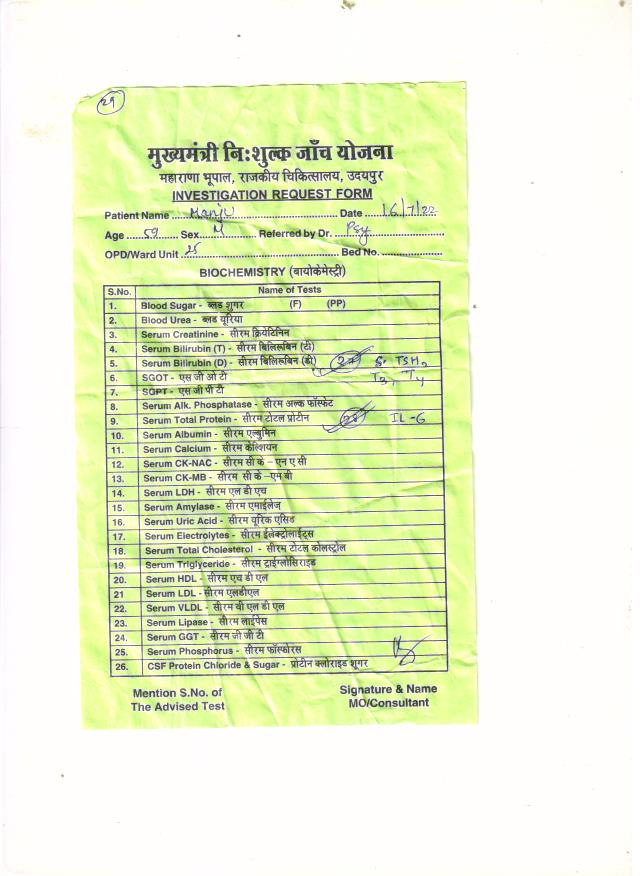 29
मुख्यमंत्री निःशुल्क जाँच योजना
महाराणा भूपाल, राजकीय चिकित्सालय, उदयपुर
INVESTIGATION REQUEST FORM
Patient Name Manju Date 16/7/22
Age 59 Sex M Referred by Dr. Psy
OPD/Ward Unit 25 Bed No.
BIOCHEMISTRY (बायोकेमेस्ट्री)
S.No. Name of Tests
1. Blood Sugar - ब्लड शुगर (F) (PP)
2. Blood Urea - ब्लड यूरिया
3. Serum Creatinine - सीरम क्रियेटिनिन
4. Serum Bilirubin (T) - सीरम बिलिरूबिन (टी)
5. Serum Bilirubin (D) - सीरम बिलिरूबिन (डी) 27 S. TSH,
6. SGOT - एस जी ओ टी T3, T4
7. SGPT - एस जी पी टी
8. Serum Alk. Phosphatase - सीरम अल्क फॉस्फेट
9. Serum Total Protein - सीरम टोटल प्रोटीन 28 IL-6
10. Serum Albumin - सीरम एल्बुमिन
11. Serum Calcium - सीरम केल्शियन
12. Serum CK-NAC - सीरम सी के – एन ए सी
13. Serum CK-MB - सीरम सी के –एम बी
14. Serum LDH - सीरम एल डी एच
15. Serum Amylase - सीरम एमाईलेज
16. Serum Uric Acid - सीरम यूरिक एसिड
17. Serum Electrolytes - सीरम ईलेक्ट्रोलाईट्स
18. Serum Total Cholesterol - सीरम टोटल कोलस्ट्रोल
19. Serum Triglyceride - सीरम ट्राईग्लोसिराइड
20. Serum HDL - सीरम एच डी एल
21 Serum LDL - सीरम एलडीएल
22. Serum VLDL - सीरम वी एल डी एल
23. Serum Lipase - सीरम लाईपेस
24. Serum GGT - सीरम जी जी टी
25. Serum Phosphorus - सीरम फॉस्फोरस
26. CSF Protein Chloride & Sugar - प्रोटीन क्लोराइड शूगर
Mention S.No. of Signature & Name
The Advised Test MO/Consultant